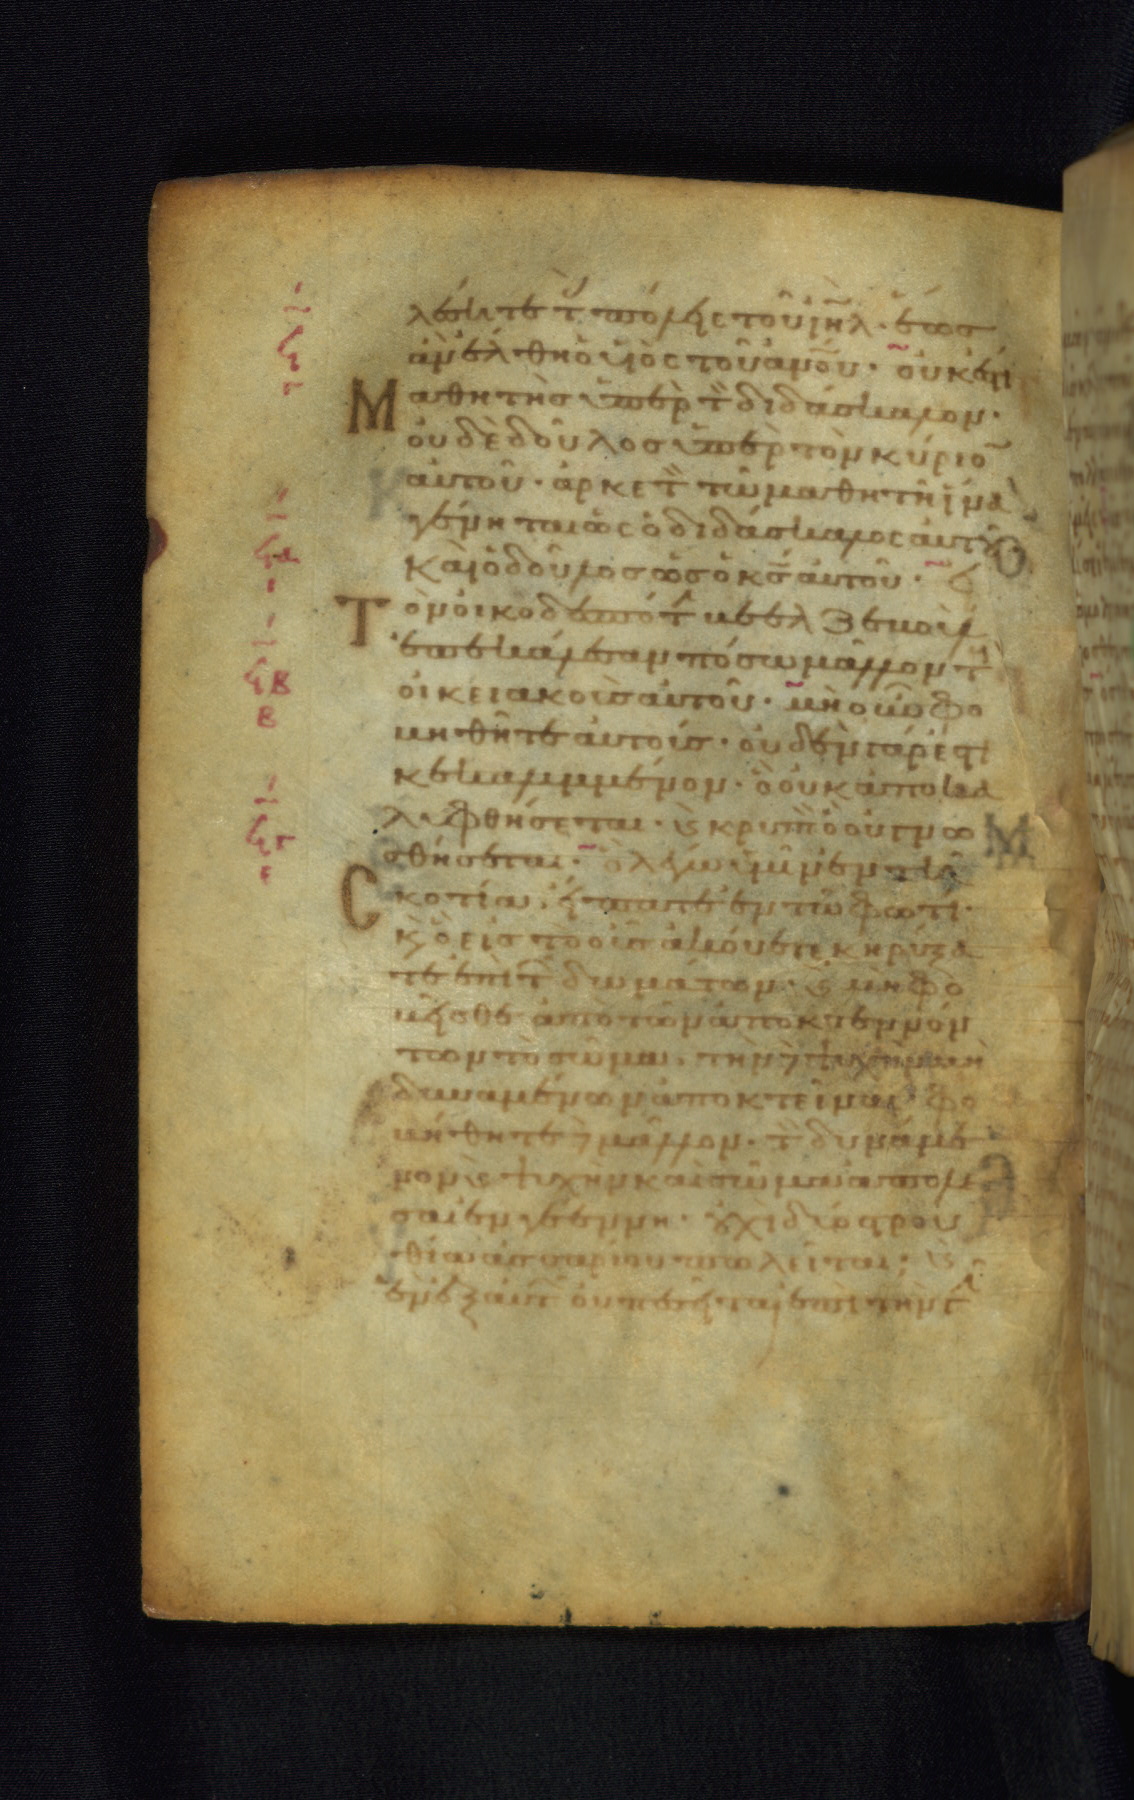 λέσητε τ πόλεις τοῦ ἰηλ· ἕως
ἂν ἔλθη ὁ υἱὸς τοῦ ἀνου· οὐκ ἔστι
Μαθητὴς ὑπὲρ τ διδάσκαλον·
οὐδὲ δοῦλος ὑπὲρ τὸν κύριο
αὐτοῦ· ἀρκετ τῶ μαθητῆ ἵνα
γένηται ὡς ὁ διδάσκαλος αυτου
καὶ ὁ δοῦλος ὡς ὁ κς αὐτοῦ· ε
Τὸν οἰκοδεσπότ βεελζεβοὺλ
ἐπεκάλεσαν πόσω μᾶλλον τ
οἰκειακοὺς αὐτοῦ· μὴ οὖν φο
βηθῆτε αὐτούς· οὐδὲν γάρ ἐστι
κεκαλυμμένον· ὃ οὐκ ἀποκα
λυφθήσεται· κ κρυπτ ὃ οὐ γνω
σθήσεται· ὃ λέγω ὑμῖν ἐν τῆ
Σκοτία, εἴπατε ἐν τῶ φωτί·
κ ὃ εἰς τὸ οὖς ἀκούετε κηρύξα
τε ἐπὶ τ δωμάτων· κ μὴ φο
βεῖσθε ἀπὸ τῶν ἀποκτεννόν
των τὸ σῶμα, τὴν δ ψυχὴν μὴ
δυναμένων ἀποκτεῖναι· φο
βήθητε δ μᾶλλον· τ δυνάμε
νον κ ψυχὴν καὶ σῶμα ἀπολέ
σαι ἐν γεέννη· οὐχὶ δύο στρου
θία ἀσσαρίου πωλεῖται; κ
ἓν ἐξ αὐτ οὐ πεσεῖται ἐπὶ τὴν γ